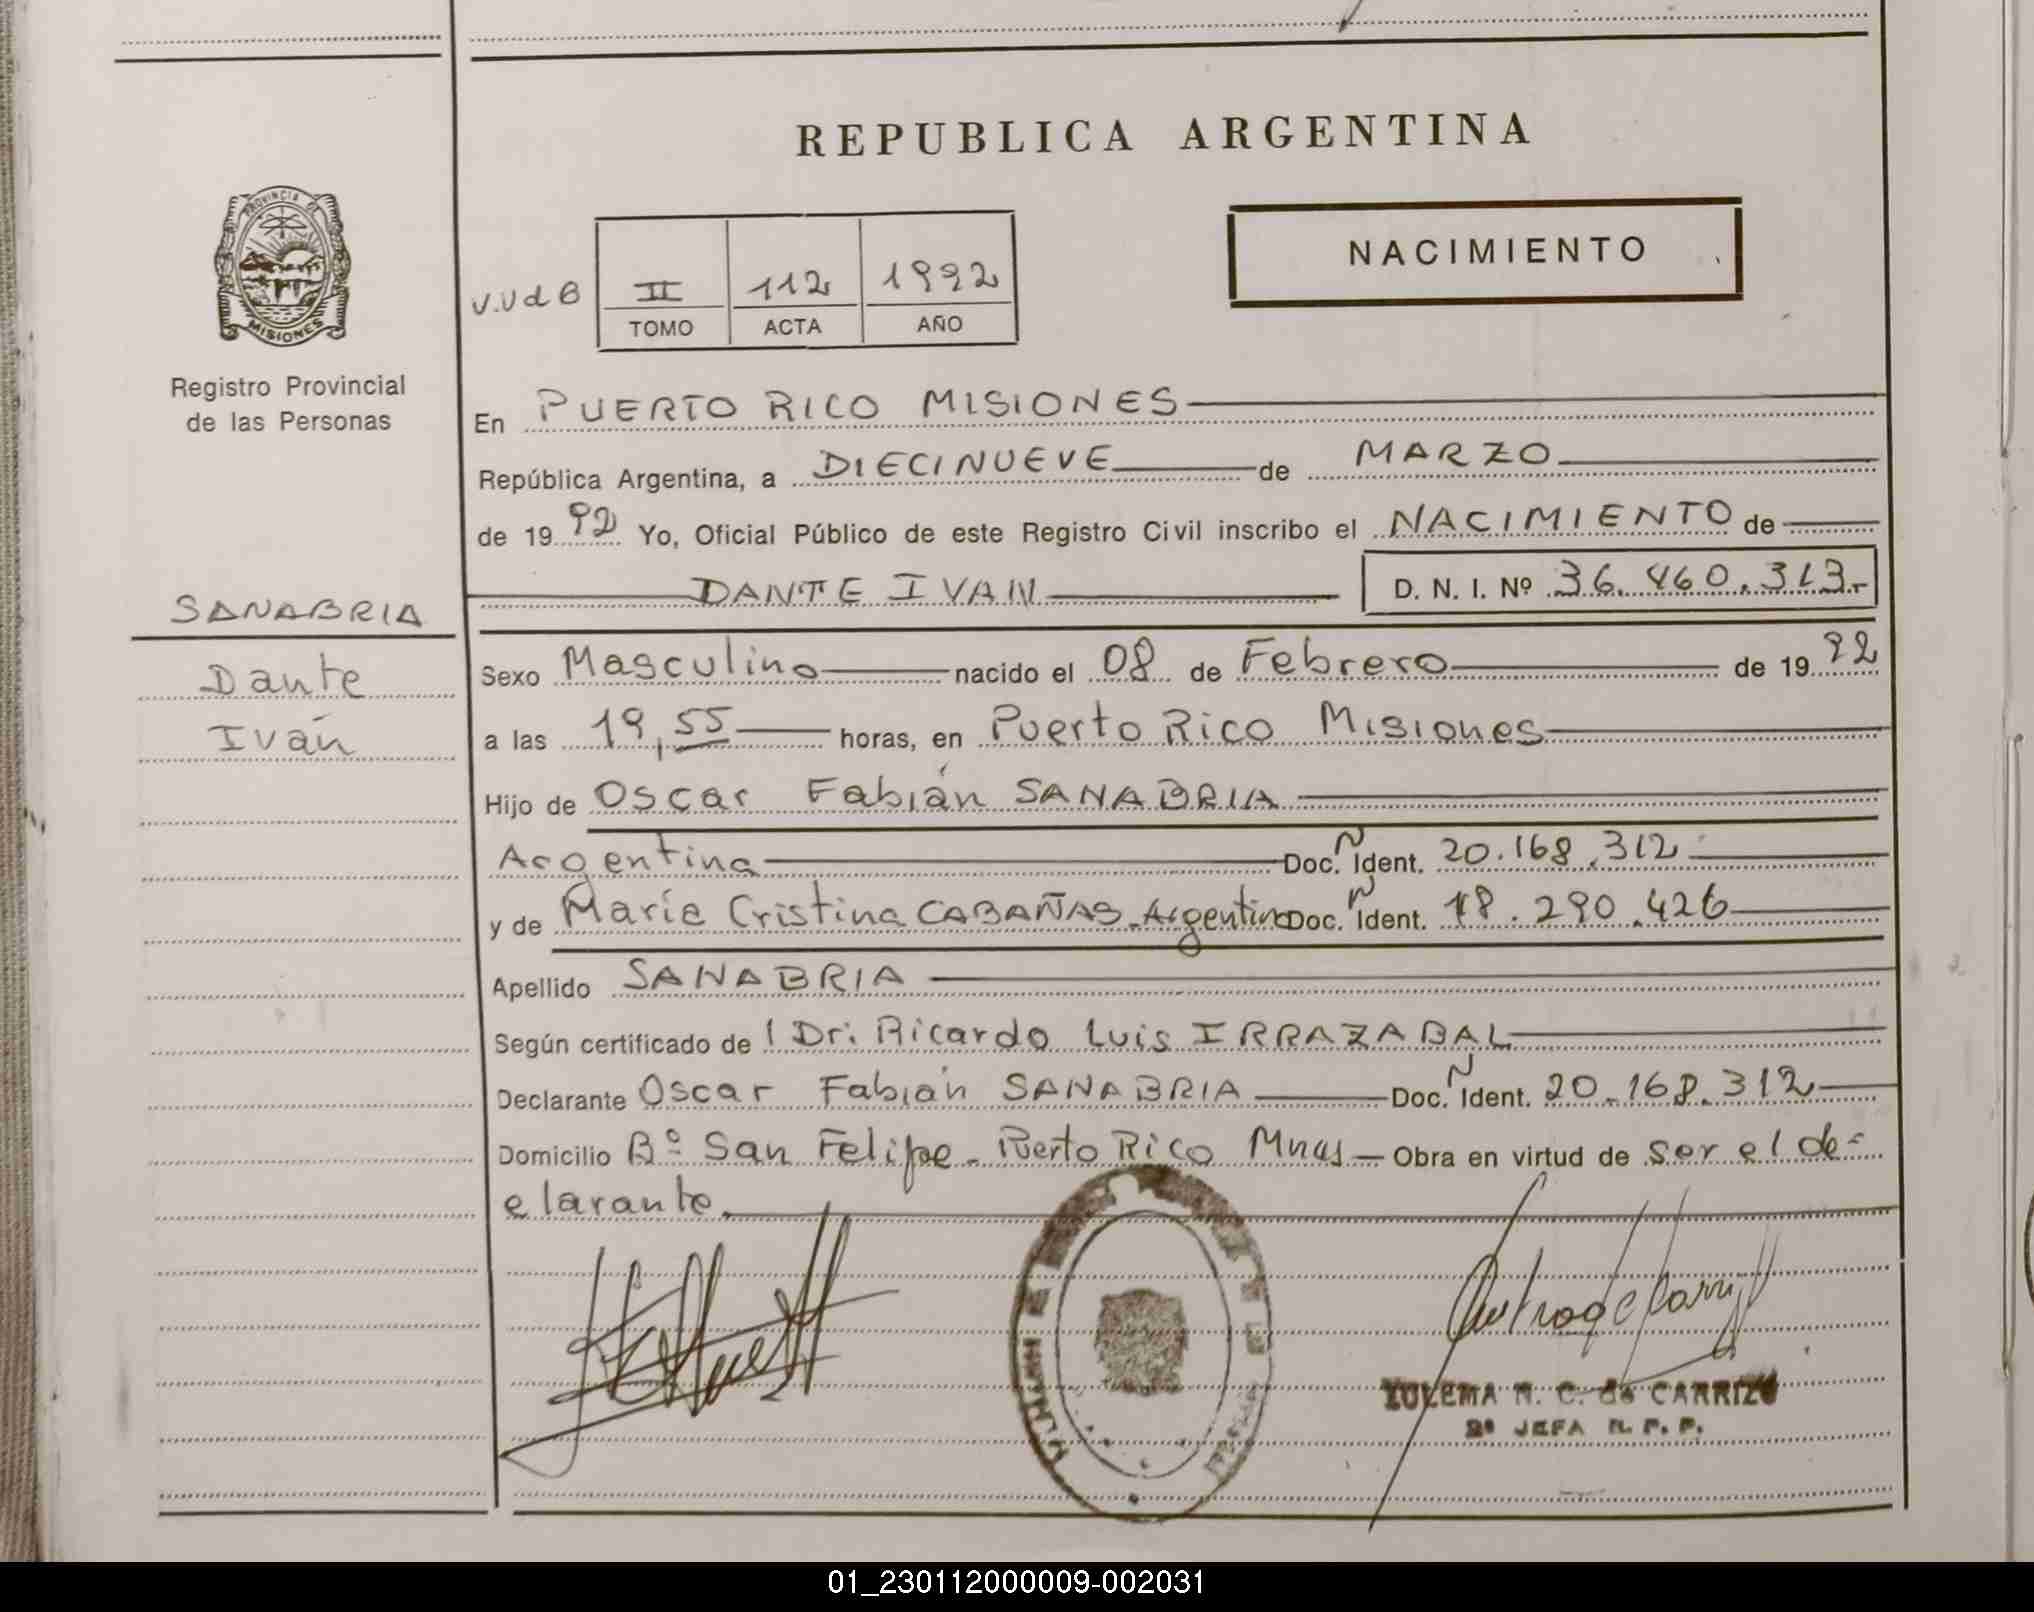 REPUBLICA ARGENTINA
NACIMIENTO
PROVINCIA DE
MISIONES
Registro Provincial
de las Personas
V.V d B
II 112 1992
TOMO ACTA AÑO
En PUERTO RICO MISIONES
República Argentina, a DIECINUEVE de MARZO
de 1992 Yo, Oficial Público de este Registro Civil inscribo el NACIMIENTO de
DANTE IVAN D. N. I. Nº 36.460.313.-
SANABRIA
Dante
Iván
Sexo Masculino nacido el 08 de Febrero de 1992
a las 19,55 horas, en Puerto Rico Misiones
Hijo de Oscar Fabián SANABRIA
Argentina Doc. N Ident. 20.168.312
y de María Cristina CABAÑAS - Argentina Doc. N Ident. 18.290.426
Apellido SANABRIA
Según certificado de l Dr: Ricardo Luis IRRAZABAL
Declarante Oscar Fabián SANABRIA Doc. N Ident. 20.168.312
Domicilio Bº San Felipe - Puerto Rico Mnes Obra en virtud de ser el de=
clarante.
ZULEMA N. C. de CARRIZO
2º JEFA R. P. P.
01_230112000009-002031